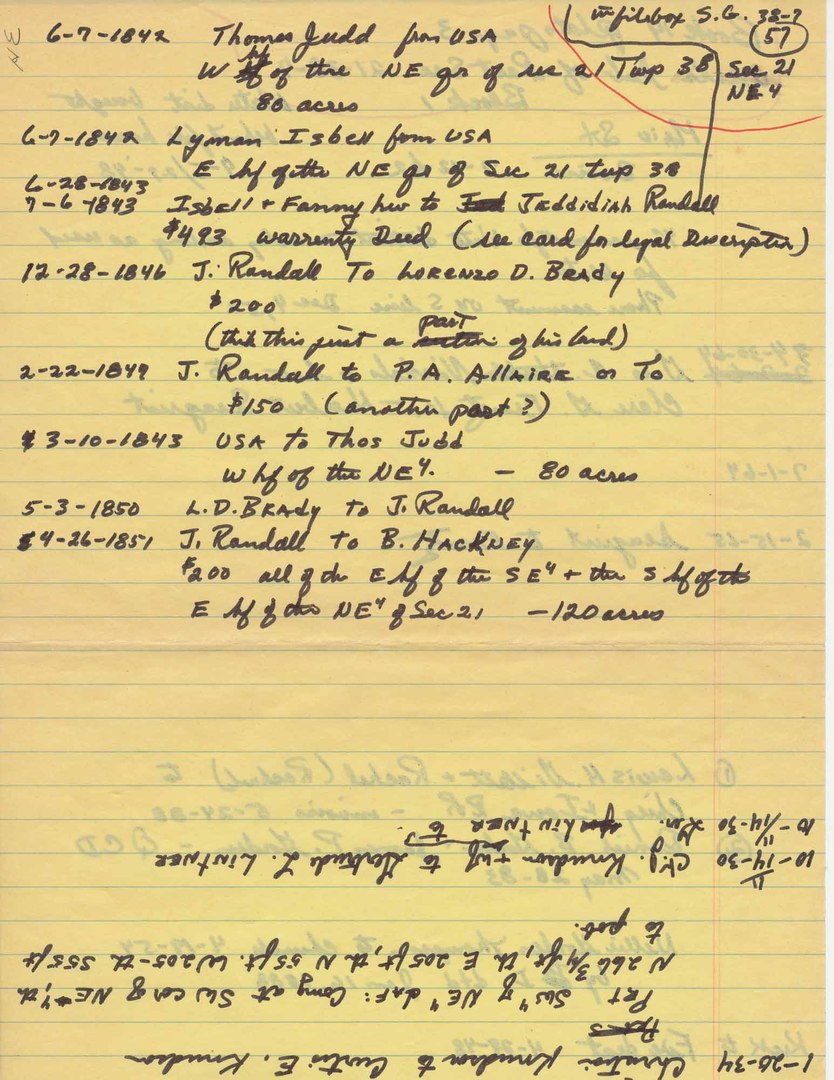 in filebox S.G. 38-7
57
Sec 21
NE 4
NE
6-7-1842 Thomas Judd from USA
W hf of the NE qr of sec 21 Twp 38
80 acres
6-7-1842 Lyman Isbell from USA
E hf of the NE qr of Sec 21 twp 38
6-28-1843
7-6-1843 Isbell + Fanny hw to Jeddidiah Randall
$493 warrenty Deed (see card for legal Description)
12-28-1846 J. Randall To Lorenzo D. Brady
$200
(think this just a part of his land)
2-22-1849 J. Randall to P.A. Allaire or To
$150 (another part?)
3-10-1843 USA to Thos Judd
W hf of the NE 4. — 80 acres
5-3-1850 L.D. Brady to J. Randall
4-26-1851 J. Randall to B. Hackney
$200 all of the E hf of the SE 4 + the S hf of the
E hf of the NE 4 of Sec 21 — 120 acres
1-20-34 Christin Knudson to Curtis E. Knudson
Prt SW 4 of NE 4 daf: Comg at SW cor of NE 4, th
N 266 3/4 ft, th E 205 ft, th N 55 ft. W 205 - th 555 ft
to pob.
10-14-30 C.J. Knudson + wf to Gertrude L. Lintner
11
10-14-30 Lintner to
11